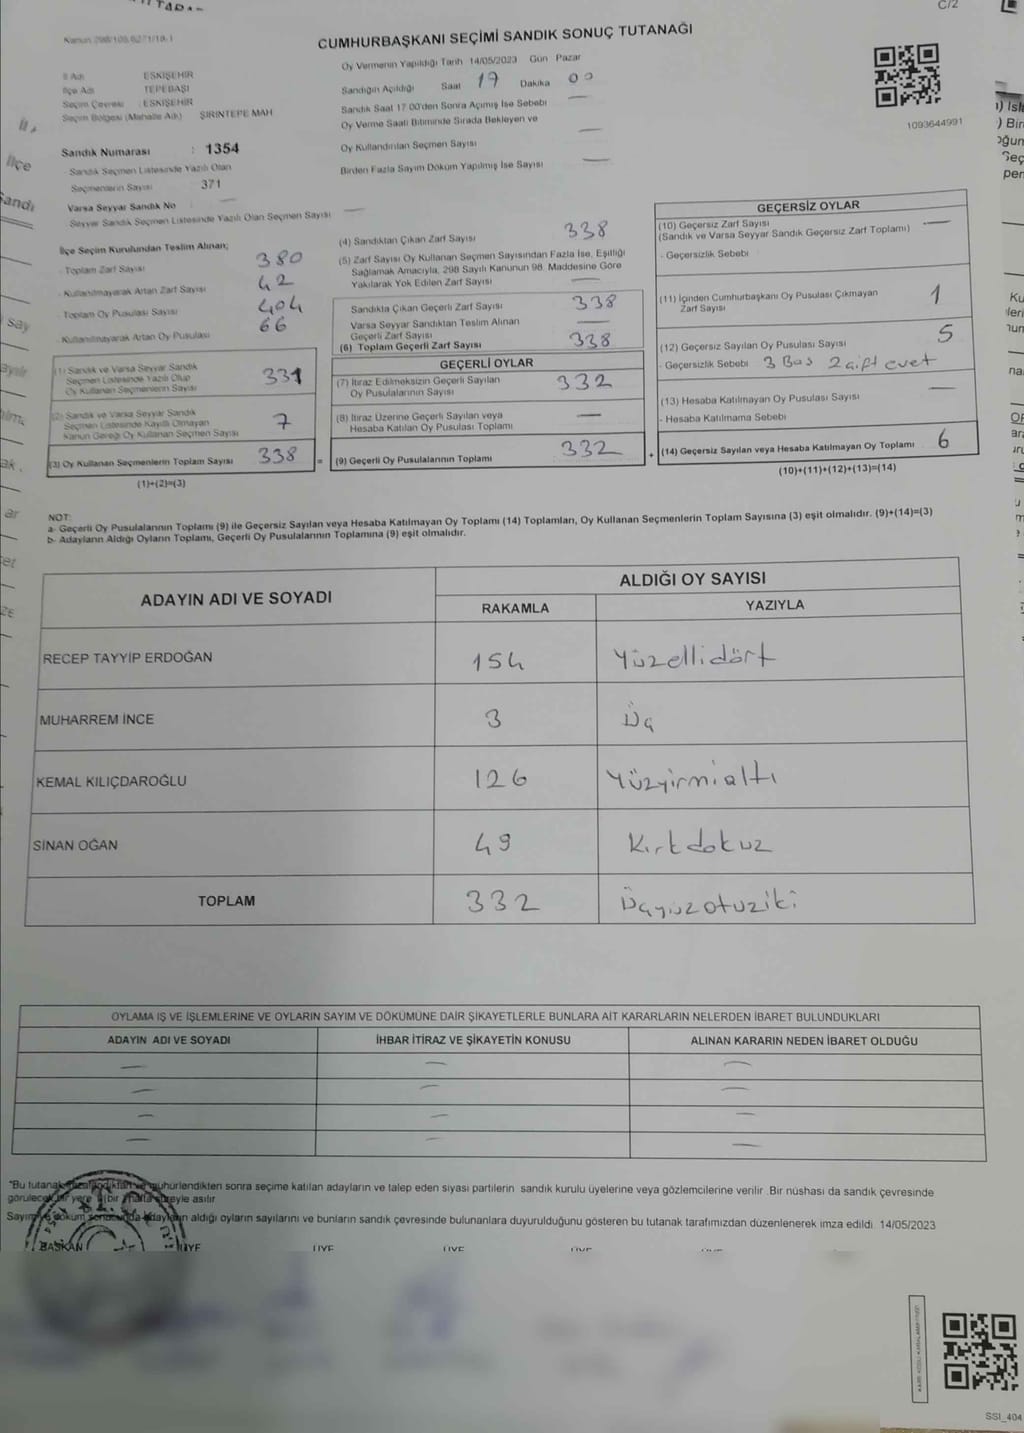 C/2
Kanun 298/105,6271/19.1
CUMHURBAŞKANI SEÇİMİ SANDIK SONUÇ TUTANAĞI
İl Adı ESKİŞEHİR
İlçe Adı TEPEBAŞI
Seçim Çevresi : ESKİŞEHİR
Seçim Bölgesi (Mahalle Adı) ŞİRİNTEPE MAH
Sandık Numarası : 1354
- Sandık Seçmen Listesinde Yazılı Olan
Seçmenlerin Sayısı 371
Varsa Seyyar Sandık No
Seyyar Sandık Seçmen Listesinde Yazılı Olan Seçmen Sayısı —
Oy Vermenin Yapıldığı Tarih 14/05/2023 Gün Pazar
Sandığın Açıldığı Saat 17 Dakika 00
Sandık Saat 17.00'den Sonra Açımış İse Sebebi —
Oy Verme Saati Bitiminde Sırada Bekleyen ve
Oy Kullandırılan Seçmen Sayısı —
Birden Fazla Sayım Döküm Yapılmış İse Sayısı —
1093644991
İlçe Seçim Kurulundan Teslim Alınan;
- Toplam Zarf Sayısı 380
- Kullanılmayarak Artan Zarf Sayısı 42
- Toplam Oy Pusulası Sayısı 404
- Kullanılmayarak Artan Oy Pusulası 66
(1) Sandık ve Varsa Seyyar Sandık
Seçmen Listesinde Yazılı Olup
Oy Kullanan Seçmenlerin Sayısı 331
(2) Sandık ve Varsa Seyyar Sandık
Seçmen Listesinde Kayıtlı Olmayan
Kanun Gereği Oy Kullanan Seçmen Sayısı 7
(3) Oy Kullanan Seçmenlerin Toplam Sayısı 338 =
(1)+(2)=(3)
(4) Sandıktan Çıkan Zarf Sayısı 338
(5) Zarf Sayısı Oy Kullanan Seçmen Sayısından Fazla İse, Eşitliği
Sağlamak Amacıyla, 298 Sayılı Kanunun 98. Maddesine Göre
Yakılarak Yok Edilen Zarf Sayısı —
Sandıkta Çıkan Geçerli Zarf Sayısı 338
Varsa Seyyar Sandıktan Teslim Alınan
Geçerli Zarf Sayısı —
(6) Toplam Geçerli Zarf Sayısı 338
GEÇERLİ OYLAR
(7) İtiraz Edilmeksizin Geçerli Sayılan
Oy Pusulalarının Sayısı 332
(8) İtiraz Üzerine Geçerli Sayılan veya
Hesaba Katılan Oy Pusulası Toplamı —
(9) Geçerli Oy Pusulalarının Toplamı 332 +
GEÇERSİZ OYLAR
(10) Geçersiz Zarf Sayısı
(Sandık ve Varsa Seyyar Sandık Geçersiz Zarf Toplamı) —
- Geçersizlik Sebebi
(11) İçinden Cumhurbaşkanı Oy Pusulası Çıkmayan
Zarf Sayısı 1
(12) Geçersiz Sayılan Oy Pusulası Sayısı 5
- Geçersizlik Sebebi 3 Boş 2 çift evet
(13) Hesaba Katılmayan Oy Pusulası Sayısı —
- Hesaba Katılmama Sebebi
(14) Geçersiz Sayılan veya Hesaba Katılmayan Oy Toplamı 6
(10)+(11)+(12)+(13)=(14)
NOT:
a- Geçerli Oy Pusulalarının Toplamı (9) ile Geçersiz Sayılan veya Hesaba Katılmayan Oy Toplamı (14) Toplamları, Oy Kullanan Seçmenlerin Toplam Sayısına (3) eşit olmalıdır. (9)+(14)=(3)
b- Adayların Aldığı Oyların Toplamı, Geçerli Oy Pusulalarının Toplamına (9) eşit olmalıdır.
ADAYIN ADI VE SOYADI
ALDIĞI OY SAYISI
RAKAMLA YAZIYLA
RECEP TAYYİP ERDOĞAN 154 Yüzellidört
MUHARREM İNCE 3 Üç
KEMAL KILIÇDAROĞLU 126 Yüzyirmialtı
SİNAN OĞAN 49 Kırkdokuz
TOPLAM 332 Üçyüzotuziki
OYLAMA İŞ VE İŞLEMLERİNE VE OYLARIN SAYIM VE DÖKÜMÜNE DAİR ŞİKAYETLERLE BUNLARA AİT KARARLARIN NELERDEN İBARET BULUNDUKLARI
ADAYIN ADI VE SOYADI İHBAR İTİRAZ VE ŞİKAYETİN KONUSU ALINAN KARARIN NEDEN İBARET OLDUĞU
— — —
— — —
— — —
— — —
"Bu tutanak mühürlendikten sonra seçime katılan adayların ve talep eden siyasi partilerin sandık kurulu üyelerine veya gözlemcilerine verilir. Bir nüshası da sandık çevresinde
görülecek bir yere (bir) hafta süreyle asılır
Sayım ve döküm sonucunda adayların aldığı oyların sayılarını ve bunların sandık çevresinde bulunanlara duyurulduğunu gösteren bu tutanak tarafımızdan düzenlenerek imza edildi. 14/05/2023
BAŞKAN ÜYE ÜYE ÜYE ÜYE
SSI_404